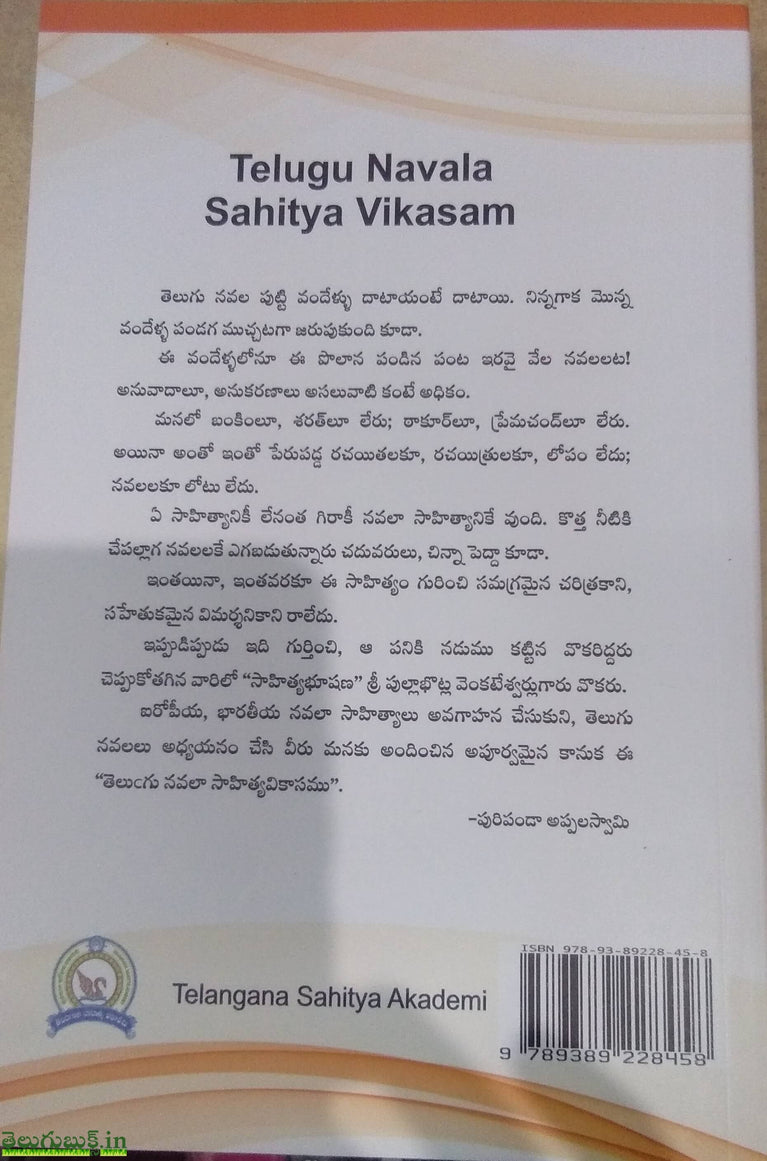 Telugu Navala
Sahitya Vikasam
తెలుగు నవల పుట్టి వందేళ్ళు దాటాయంటే దాటాయి. నిన్నగాక మొన్న
వందేళ్ళ పండగ ముచ్చటగా జరుపుకుంది కూడా.
ఈ వందేళ్ళలోనూ ఈ పొలాన పండిన పంట ఇరవై వేల నవలలట!
అనువాదాలూ, అనుకరణాలు అసలువాటి కంటే అధికం.
మనలో బంకింలూ, శరత్‌లూ లేరు; ఠాకూర్‌లూ, ప్రేమచంద్‌లూ లేరు.
అయినా అంతో ఇంతో పేరుపడ్డ రచయితలకూ, రచయిత్రులకూ, లోపం లేదు;
నవలలకూ లోటు లేదు.
ఏ సాహిత్యానికీ లేనంత గిరాకీ నవలా సాహిత్యానికే వుంది. కొత్త నీటికి
చేపల్లాగ నవలలకే ఎగబడుతున్నారు చదువరులు, చిన్నా పెద్దా కూడా.
ఇంతయినా, ఇంతవరకూ ఈ సాహిత్యం గురించి సమగ్రమైన చరిత్రకాని,
సహేతుకమైన విమర్శనికాని రాలేదు.
ఇప్పుడిప్పుడు ఇది గుర్తించి, ఆ పనికి నడుము కట్టిన వొకరిద్దరు
చెప్పుకోతగిన వారిలో “సాహిత్యభూషణ” శ్రీ పుల్లాభొట్ల వెంకటేశ్వర్లుగారు వొకరు.
ఐరోపీయ, భారతీయ నవలా సాహిత్యాలు అవగాహన చేసుకుని, తెలుగు
నవలలు అధ్యయనం చేసి వీరు మనకు అందించిన అపూర్వమైన కానుక ఈ
“తెలుఁగు నవలా సాహిత్యవికాసము”.
-పురిపండా అప్పలస్వామి
ISBN 978-93-89228-45-8
Telangana Sahitya Akademi
9 789389 228458
తెలుగుబుక్స్.in